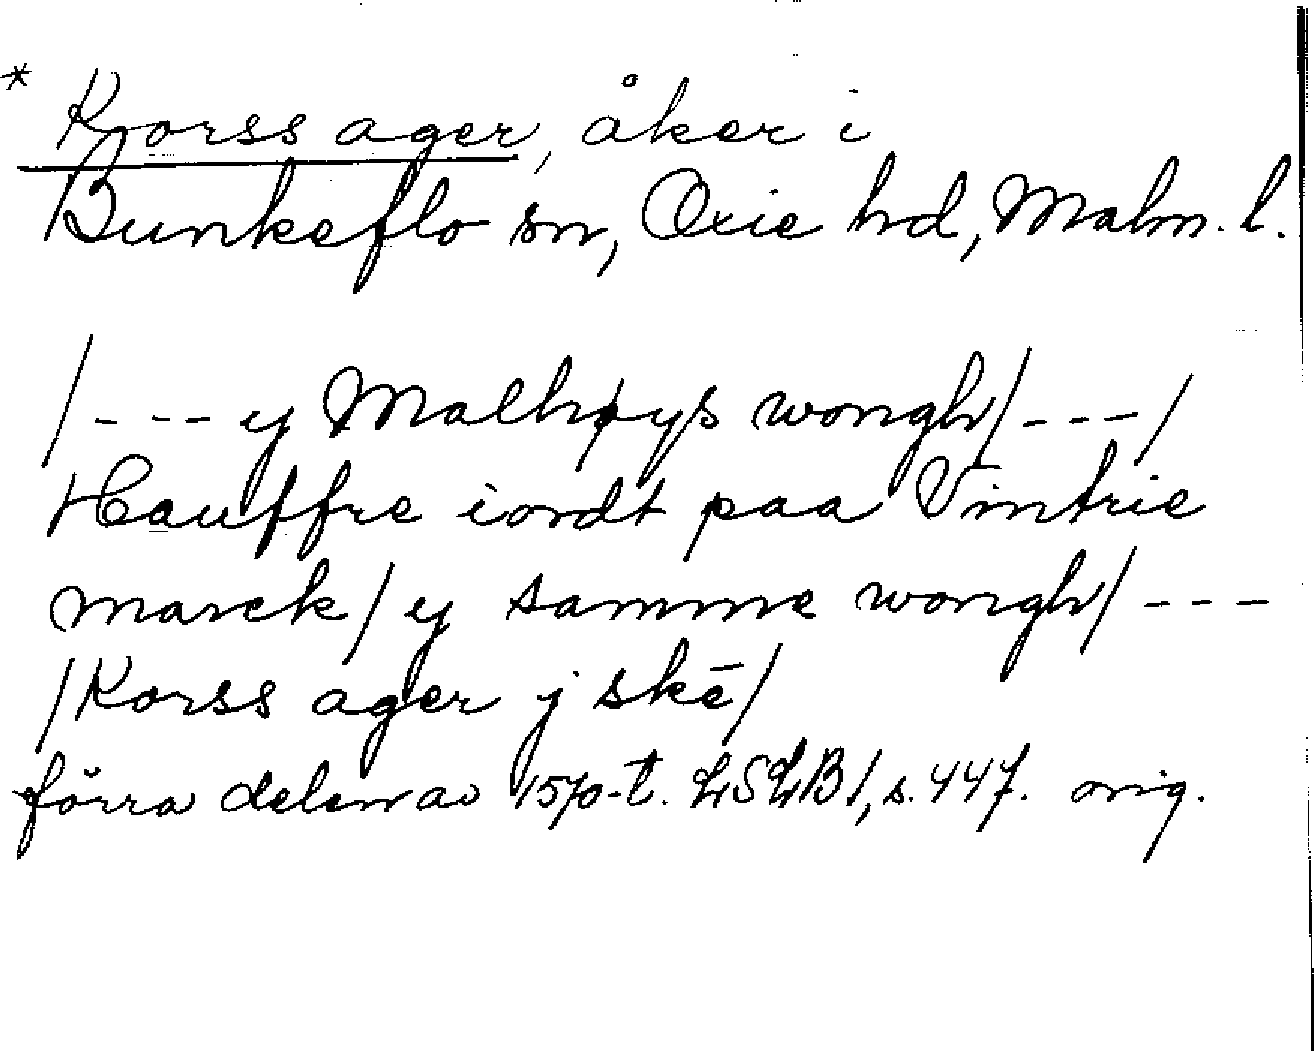 * Korss ager, åker i
Bunkeflo sn, Oxie hd, Malm. l.
/--- y Malhøys wongh/---/
Hauffre iordt paa Vintrie
marck/ y samme wongh/ ---
/Korss ager j skē/
förra delen av 1570-t. LSLB 1, s. 447. orig.